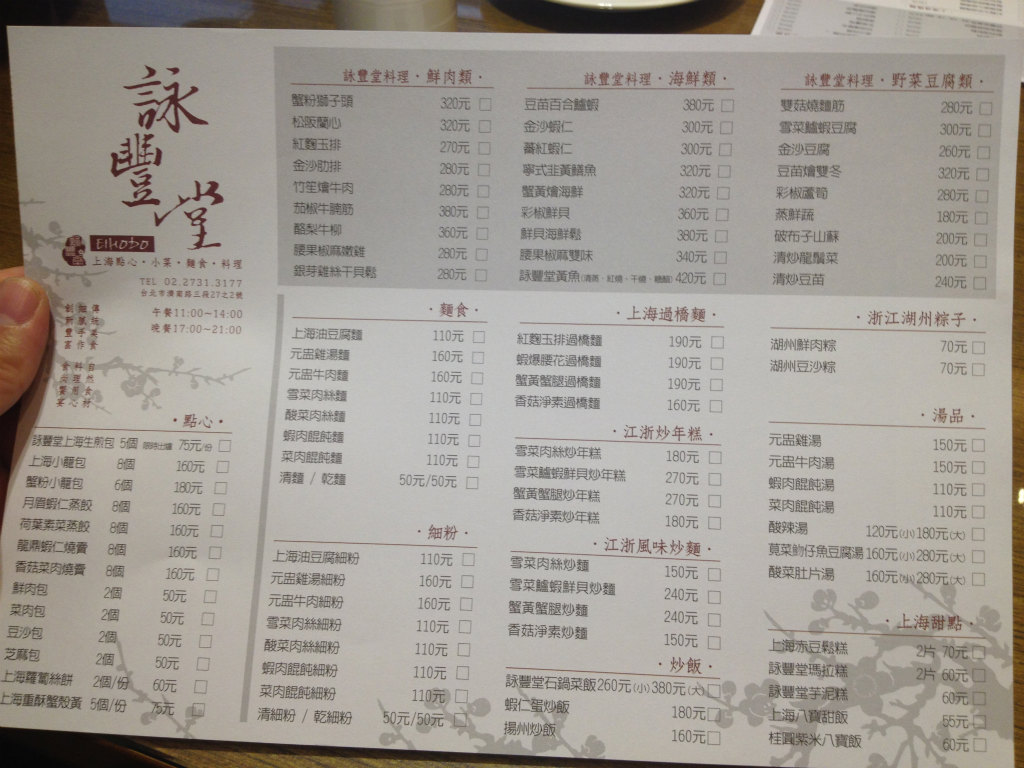 詠豐堂
EIHODO
上海點心・小菜・麵食・料理
TEL 02.2731.3177
台北市濟南路三段27之2號
午餐11:00~14:00
晚餐17:00~21:00
・點心・
詠豐堂上海生煎包 5個 限時出爐 75元/份
上海小籠包 8個 160元
蟹粉小籠包 6個 180元
月眉蝦仁蒸餃 8個 160元
荷葉素菜蒸餃 8個 160元
龍鼎蝦仁燒賣 8個 160元
香菇菜肉燒賣 8個 160元
鮮肉包 2個 50元
菜肉包 2個 50元
豆沙包 2個 50元
芝麻包 2個 50元
上海蘿蔔絲餅 2個/份 60元
上海重酥蟹殼黃 5個/份 75元
詠豐堂料理・鮮肉類・
蟹粉獅子頭 320元
松阪蘭心 320元
紅麴玉排 270元
金沙肋排 280元
竹笙燴牛肉 280元
茄椒牛腩筋 380元
酪梨牛柳 360元
腰果椒麻嫩雞 280元
銀芽雞絲干貝鬆 280元
詠豐堂料理・海鮮類・
豆苗百合鱸蝦 380元
金沙蝦仁 300元
蕃紅蝦仁 300元
寧式韭黃鱔魚 320元
蟹黃燴海鮮 320元
彩椒鮮貝 360元
鮮貝海鮮鬆 380元
腰果椒麻雙味 340元
詠豐堂黃魚(清蒸、紅燒、干燒、糖醋) 420元
詠豐堂料理・野菜豆腐類・
雙菇燒麵筋 280元
雪菜鱸蝦豆腐 300元
金沙豆腐 260元
豆苗燴雙冬 320元
彩椒蘆筍 280元
蒸鮮蔬 180元
破布子山蘇 200元
清炒龍鬚菜 200元
清炒豆苗 240元
・麵食・
上海油豆腐麵 110元
元盅雞湯麵 160元
元盅牛肉麵 160元
雪菜肉絲麵 110元
酸菜肉絲麵 110元
蝦肉餛飩麵 110元
菜肉餛飩麵 110元
清麵 / 乾麵 50元/50元
・細粉・
上海油豆腐細粉 110元
元盅雞湯細粉 160元
元盅牛肉細粉 160元
雪菜肉絲細粉 110元
酸菜肉絲細粉 110元
蝦肉餛飩細粉 110元
菜肉餛飩細粉 110元
清細粉 / 乾細粉 50元/50元
・上海過橋麵・
紅麴玉排過橋麵 190元
蝦爆腰花過橋麵 190元
蟹黃蟹腿過橋麵 190元
香菇淨素過橋麵 160元
・江浙炒年糕・
雪菜肉絲炒年糕 180元
雪菜鱸蝦鮮貝炒年糕 270元
蟹黃蟹腿炒年糕 270元
香菇淨素炒年糕 180元
・江浙風味炒麵・
雪菜肉絲炒麵 150元
雪菜鱸蝦鮮貝炒麵 240元
蟹黃蟹腿炒麵 240元
香菇淨素炒麵 150元
・炒飯・
詠豐堂石鍋菜飯 260元(小) 380元(大)
蝦仁蛋炒飯 180元
揚州炒飯 160元
・浙江湖州粽子・
湖州鮮肉粽 70元
湖州豆沙粽 70元
・湯品・
元盅雞湯 150元
元盅牛肉湯 150元
蝦肉餛飩湯 110元
菜肉餛飩湯 110元
酸辣湯 120元(小) 180元(大)
莧菜魩仔魚豆腐湯 160元(小) 280元(大)
酸菜肚片湯 160元(小) 280元(大)
・上海甜點・
上海赤豆鬆糕 2片 70元
詠豐堂瑪拉糕 2片 60元
詠豐堂芋泥糕 60元
上海八寶甜飯 55元
桂圓紫米八寶飯 60元